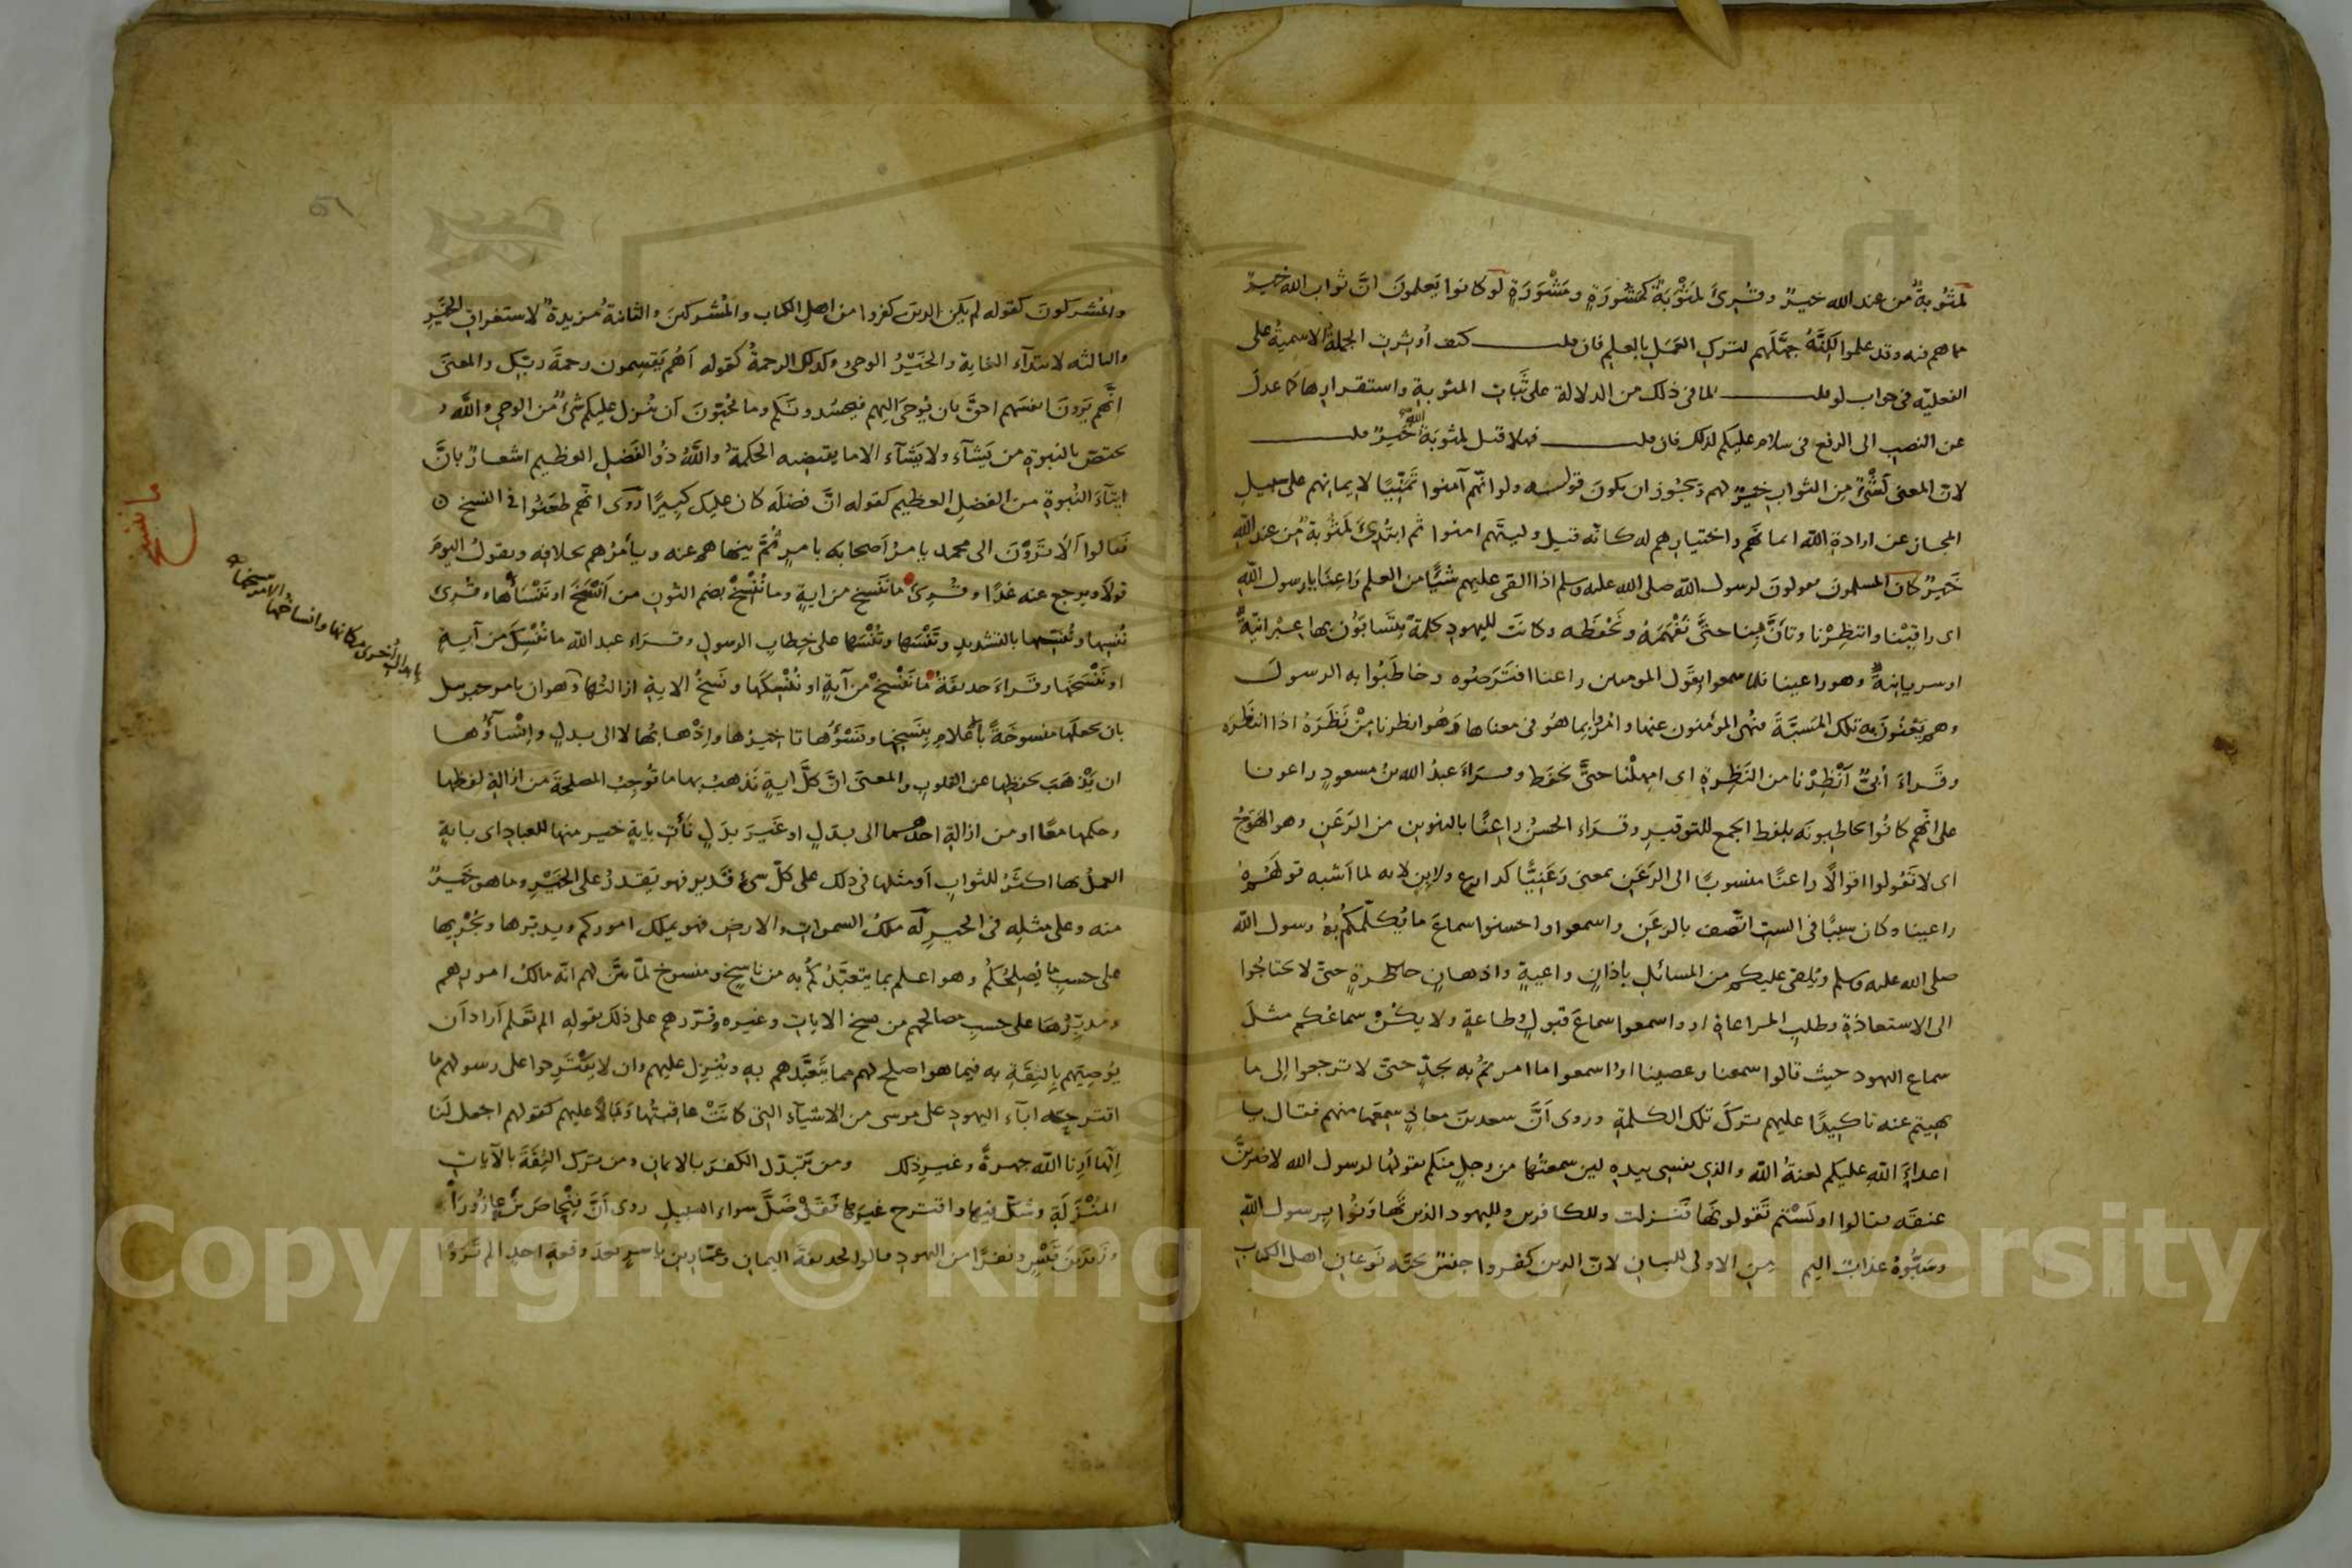 لمثُوبةٌ من عند الله خيرٌ وقُرِئَ لمَثْوَبَةٌ كمشُورَةٍ ومَشْوَرَةٍ لَو كانوا يَعلمونَ انّ ثواب الله خيرٌ
مما هم فيه وقد علموا لكِنَّهُ جهَّلَهم لترك العَمَلِ بالعلمِ فان قلت كيف أُوثرت الجملةُ الاسميةُ على
الفعليّه فى جواب لو قلت لما فى ذلك من الدلالة على ثَبات المثوبةِ واستقرارِها كما عدلَ
عن النصب الى الرفع فى سلام عليكم لذلك فان قلت فهلا قيل لمثوبَةُ الله خَيرٌ قلت
لانّ المعنى لَشَىْءٌ من الثواب خيرٌ لهم ويجوز ان يكون قولـه ولو انّهم آمنوا تمنّيًا لايمانهم على سبيل
المجاز عن ارادةِ الله ايمانَهُم واختيارِهم له كانّه قيل وليتَهم امنوا ثم ابتُدِئَ لَمَثُوبةٌ من عند الله
خَيرٌ كان المسلمون يقولونَ لرسول الله صلى الله عليه وسلم اذا القى عليهم شيئًا من العلم رَاعِنَا يا رسول الله
اى راقِبْنا وانتظِرْنا وتأَنَّ بِنا حتَّى نَفْهَمَهُ ونَحْفَظَه وكانَت لليهودِ كلمةٌ يتَسابُّون بها عِبْرانيّةٌ
او سريانيةٌ وهو راعينا فلما سمعوا بقَول المومنين راعنا افتَرَصُوه وخاطَبُوا به الرسولَ
وهم يَعْنُون به تلك المَسَبَّةَ فنُهى المؤمنون عنها وامُروا بما هُو فى معناها وَهُو انظرنا مِنْ نَظَرَهُ اذا انتظَرَه
وقَراءَ أُبىٌّ أَنْظِرْنا من النَظِرةِ اى امهِلْنا حتَّى نحفَظ وقـرَاءَ عبدُ الله بنُ مسعودٍ راعونا
على انّهم كانُوا يخاطبونَه بلفظ الجمع للتوقيرِ وقـرَاء الحسَنُ راعِنًا بالتنوين من الرَعَنِ وهو الهَوَجُ
اى لا تَقُولوا قوالًا راعنًا منسوبًا الى الرَعَنِ بمعنى رَعَنِيًّا كدارع ولابِنٍ لانه لما اَشبه قولَهُمْ
راعينا وكان سببًا فى السبّ اتّصف بالرعَنِ واسمعوا واحسنوا سماعَ ما يُكلّمكم به رسول الله
صلى الله عليه وسلم ويُلقى عليكم من المسائل باذانٍ واعيةٍ واذهانٍ حاظرةٍ حتّى لا تحتاجُوا
الى الاستعادةِ وطلبِ المراعاة او واسمعوا سماعَ قبولٍ وطاعةٍ ولا يكُنْ سماعُكم مثلَ
سماع اليهود حيث قالوا سمعنا وعصينا او واسمعوا ما امرتمُ به بجدٍّ حتىّ لا ترجعوا إلى ما
نهيتم عنه تاكيدًا عليهم ترك تلك الكلمةِ وروى اَنَّ سعد بنَ معاذٍ سمِعَها منهم فقال يا
اعداءَ اللهِ عليكم لعنةُ الله والذى نفسى بيدهِ لين سمعتُها من رجلٍ منكم يقولُها لرسول الله لاضربَنَّ
عنقَه فقالوا اولَسْتم تَقولونَها فَنـزلت وللكافرين ولليهود الذين تهَاوَنُوا برسول الله
وسَبُّوهُ عذابٌ اليم مِن الاولى للبيان لانّ الذين كَفروا جنسٌ تحتَه نَوعانِ اهل الكتاب
والمُشركونَ كقوله لم يكن الذين كفروا من اهل الكتاب والمُشركين والثانيةُ مزيدةٌ لاستغراق الخيرِ
والثالثه لابتدآء الغايةِ والخَيْرُ الوحى وكذلك الرحمةُ كقوله اَهُم يَقسِمون رحمةَ ربّك والمعنى
انّهم يَرونَ انفسَهم احقَّ بان يُوحَى اليهم فيحسُدونَكم وما يُحبّونَ اَن يُنزل عليكم شئٌ من الوحى والله
يختصّ بالنبوةِ من يَشآءُ ولا يَشآء الا ما يقتضيه الحكمةُ واللهُ ذُو الفَضلِ العظيم اشعارٌ بانَّ
ايتآءَ النُبوةِ من الفضلِ العظيم كقوله انّ فضلَه كان عليك كبيرًا رُوى انّهم طَعَنُوا فى النسخ
فَقالوا اَلا تَرَوْنَ الى محمد يامرُ اَصحابه بامرٍ ثمَّ ينهاهم عنه ويأمرُهم بخلافه ويقولُ اليومَ
قولًا ويرجع عنه غدًا وقُرِئَ ما نَنسخ من ايةٍ وما نُنسِخْ بضم النّون من اَنسخَ او نَنْسَأْها وقُرِئَ
نُنسِها ونُنَسِّها بالتشديدِ وتَنْسَها وتُنْسَها على خطاب الرسولِ وقـرَاء عبد الله ما نُنْسِكَ من آيةٍ
او نَنْسَخْها وقَـراءَ حذيفةُ ما نَنْسَخْ من آيةٍ او نُنْسِكَها ونَسخُ الايةِ ازالتُها وهو ان يامر جبريل
بان يجعلَها منسوخَةً بالاعلامِ بنَسخِها ونَسْؤُها تاخيرُها واذهابُها لا الى بدلٍ وانْسآؤُها
ان يَذْهَبَ بحفظِها عن القلوبِ والمعنى انَّ كلَّ ايةٍ نَذهبُ بها ما تُوجِبُ المصلحةَ من ازالةِ لفظِها
وحكمِها معًا او من ازالةِ احدهـما الى بدَلٍ او غَيرَ بدَلٍ نَأتِ بايةٍ خيرٍ منها للعبادِ اى بايةٍ
العملُ بها اكثَرُ للثوابِ اَو مثلها فى ذلك على كلّ شئ قَدير فهو يَقدرُ على الخَيْرِ وما هو خَيرٌ
منه وعلى مثلِه فى الخيرِ لَه ملكُ السموات والارض فهو يملك اموركم ويدبّرها ويُجْرِيها
على حسبِ ما يُصلِحُكُم وهو اعلم بما يتعبَّدُكُم به من ناسخٍ ومنسوخ لمّا بيَّن لهم انّه مالكُ امورهم
ومُدبِّرُها على حسبِ مصالحِهم من نسخ الايات وغيره وقرّرهم على ذلك بقولهِ الم تَعلم اَراد اَن
يُوصيَهم بالثقةِ به فيما هو اصلح لهم مما يتعَبَّدهم به ويُنزل عليهم وان لا يقْتَرحوا على رسولهم ما
اقترحته ابآء اليهود على موسى من الاشيآء التى كانَتْ عاقبتُها وَبالًا عليهم كقولهم اجعل لَنا
اِلٰهًا اَرِنا الله جهرةً وغيرِ ذلك ومن يَتبدّل الكفرَ بالايمان ومن ترك الثِقَةَ بالآياتِ
المُنْزَلَةِ وشكّ فيها واقترح غيرَها فَقَدْ ضَلَّ سواء السبيل روى اَنَّ فِنْحاصَ بنَ عازُورَآءَ
وزَيدَ بن قَيْسٍ ونفرًا من اليهودِ قالوا لحذيفة بن اليمانِ وعمّار بن ياسرٍ بعدَ وقعةِ احدٍ الم تَرَوْا
ما ننسخ
بابدال اُخرى مكانها وانساخها الامر بنسخها